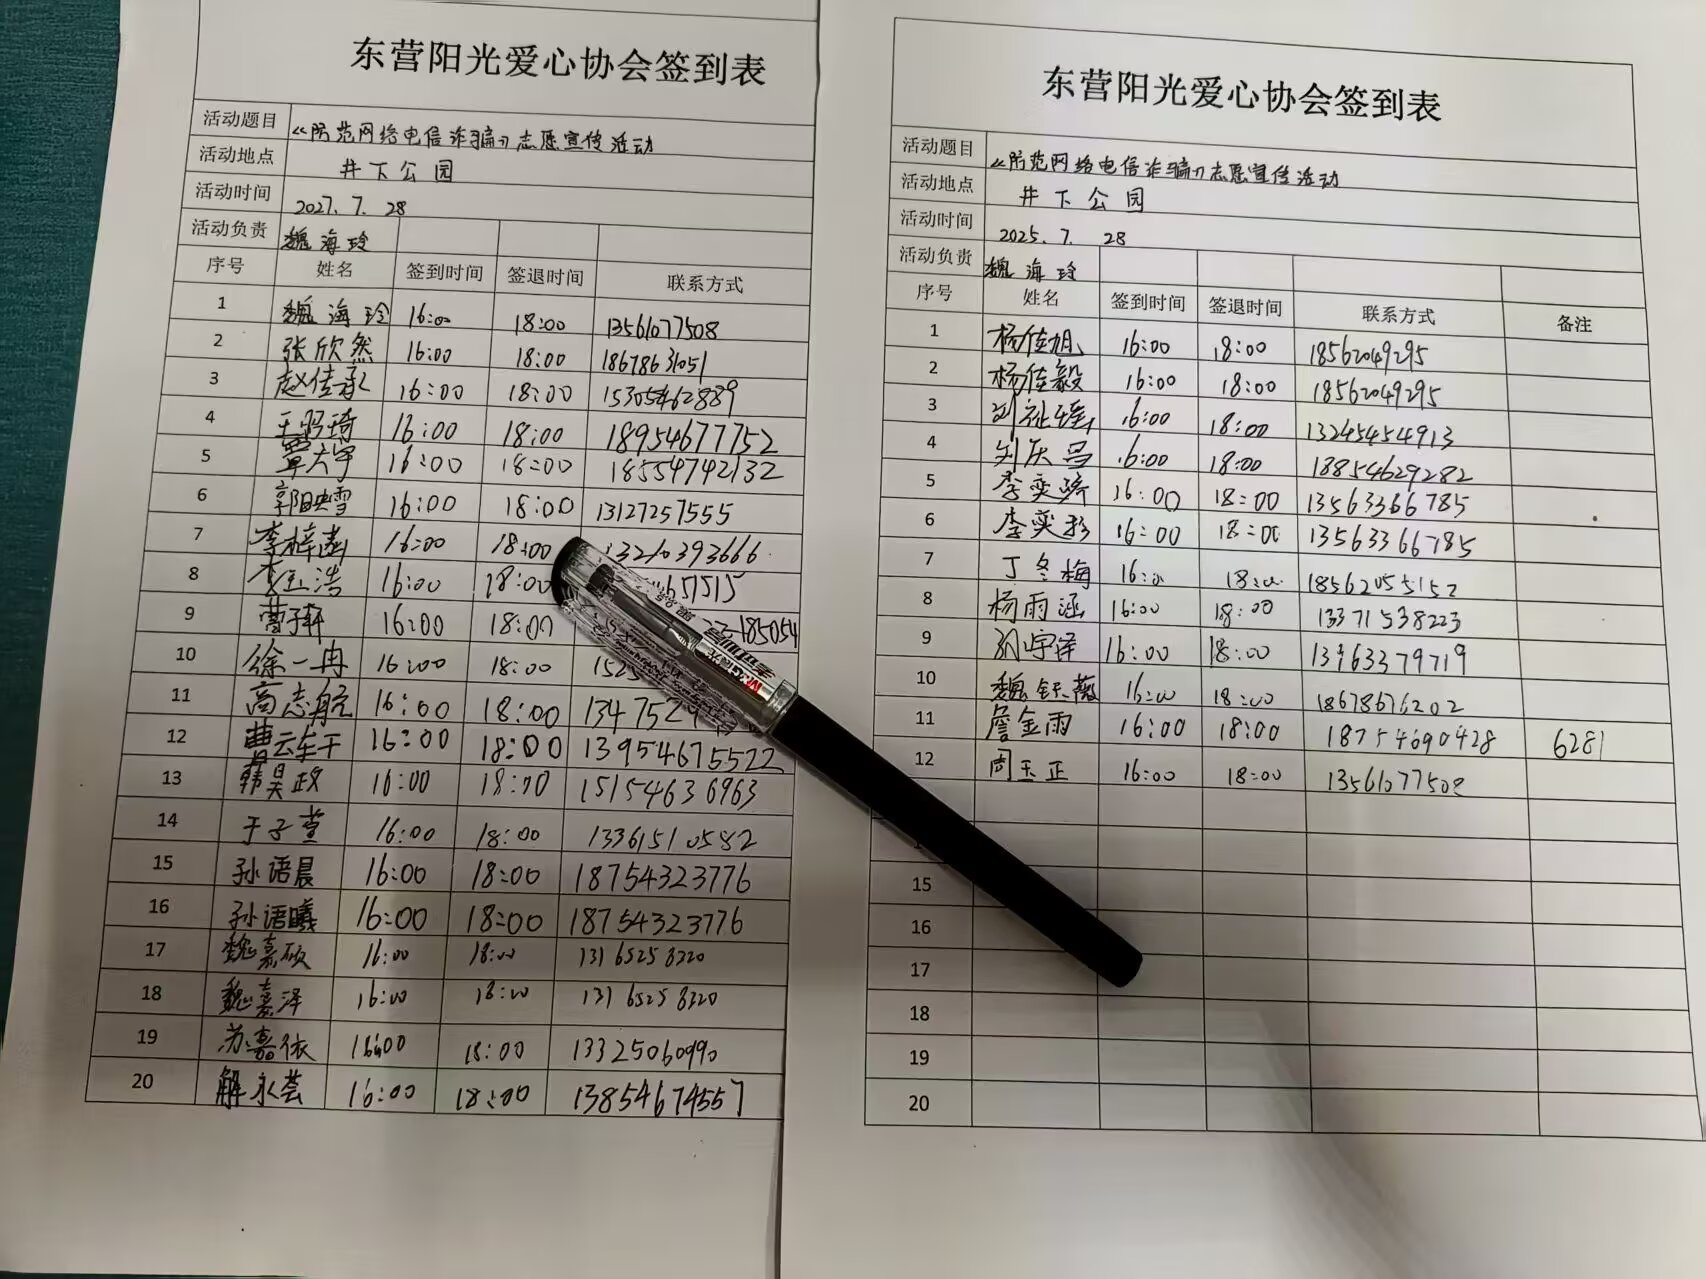 东营阳光爱心协会签到表
活动题目 《防范网络电信诈骗》志愿宣传活动
活动地点 井下公园
活动时间 2027.7.28
活动负责 魏海玲
序号 姓名 签到时间 签退时间 联系方式
1 魏海玲 16:00 18:00 13561077508
2 张欣然 16:00 18:00 18678631051
3 赵佳承 16:00 18:00 15305462889
4 王明琦 16:00 18:00 18954677752
5 覃大宇 16:00 18:00 18554742132
6 郭映雪 16:00 18:00 13127257555
7 李梓涵 16:00 18:00 13210393666
8 16:00 18:00
9 曹子轩 16:00 18:00 185054
10 徐一冉 16:00 18:00
11 高志航 16:00 18:00
12 16:00 18:00 13954675522
13 韩昊政 16:00 18:00 15154636963
14 于子萱 16:00 18:00 13361510582
15 孙语晨 16:00 18:00 18754323776
16 孙语曦 16:00 18:00 18754323776
17 魏嘉硕 16:00 18:00 13165258320
18 魏嘉泽 16:00 18:00 13165258320
19 苏嘉依 16:00 18:00 13325060990
20 解永荟 16:00 18:00 13854674557
东营阳光爱心协会签到表
活动题目 《防范网络电信诈骗》志愿宣传活动
活动地点 井下公园
活动时间 2025.7.28
活动负责 魏海玲
序号 姓名 签到时间 签退时间 联系方式 备注
1 杨佳旭 16:00 18:00 18562049295
2 杨佳毅 16:00 18:00 18562049295
3 16:00 18:00 13245454913
4 刘庆昌 16:00 18:00 18854629282
5 李奕骄 16:00 18:00 13563366785
6 李奕彤 16:00 18:00 13563366785
7 丁冬梅 16:00 18:00 18562055152
8 杨雨涵 16:00 18:00 13371538223
9 孙宇泽 16:00 18:00 13963379719
10 魏钰薇 16:00 18:00 18678676202
11 詹金雨 16:00 18:00 18754690428 6281
12 周玉正 16:00 18:00 13561077508
15
16
17
18
19
20